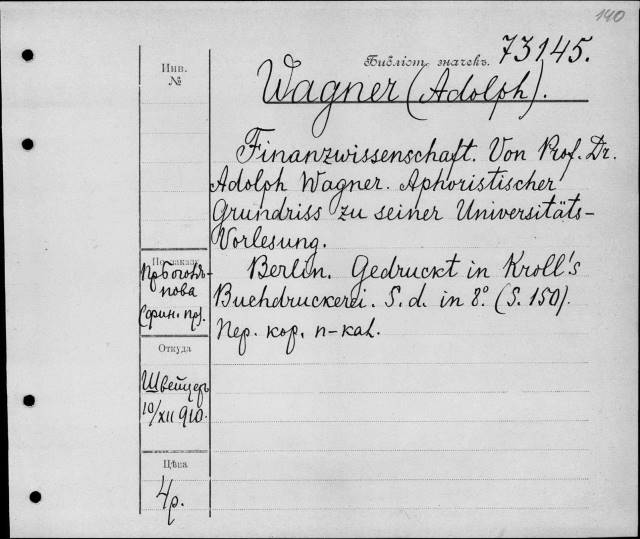 140
Инв.
№
Библіот. значекъ. 73145.
Wagner (Adolph).
Finanzwissenschaft. Von Prof. Dr.
Adolph Wagner. Aphoristischer
Grundriss zu seiner Universitäts-
Vorlesung.
Berlin. Gedruckt in Kroll's
Buchdruckerei. S. d. in 8º. (S. 150).
Пер. кор. п-каl.
По заказу
пова
(фин. пр).
Откуда
Швейцеръ
10/XII 910.
Цѣна
4р.